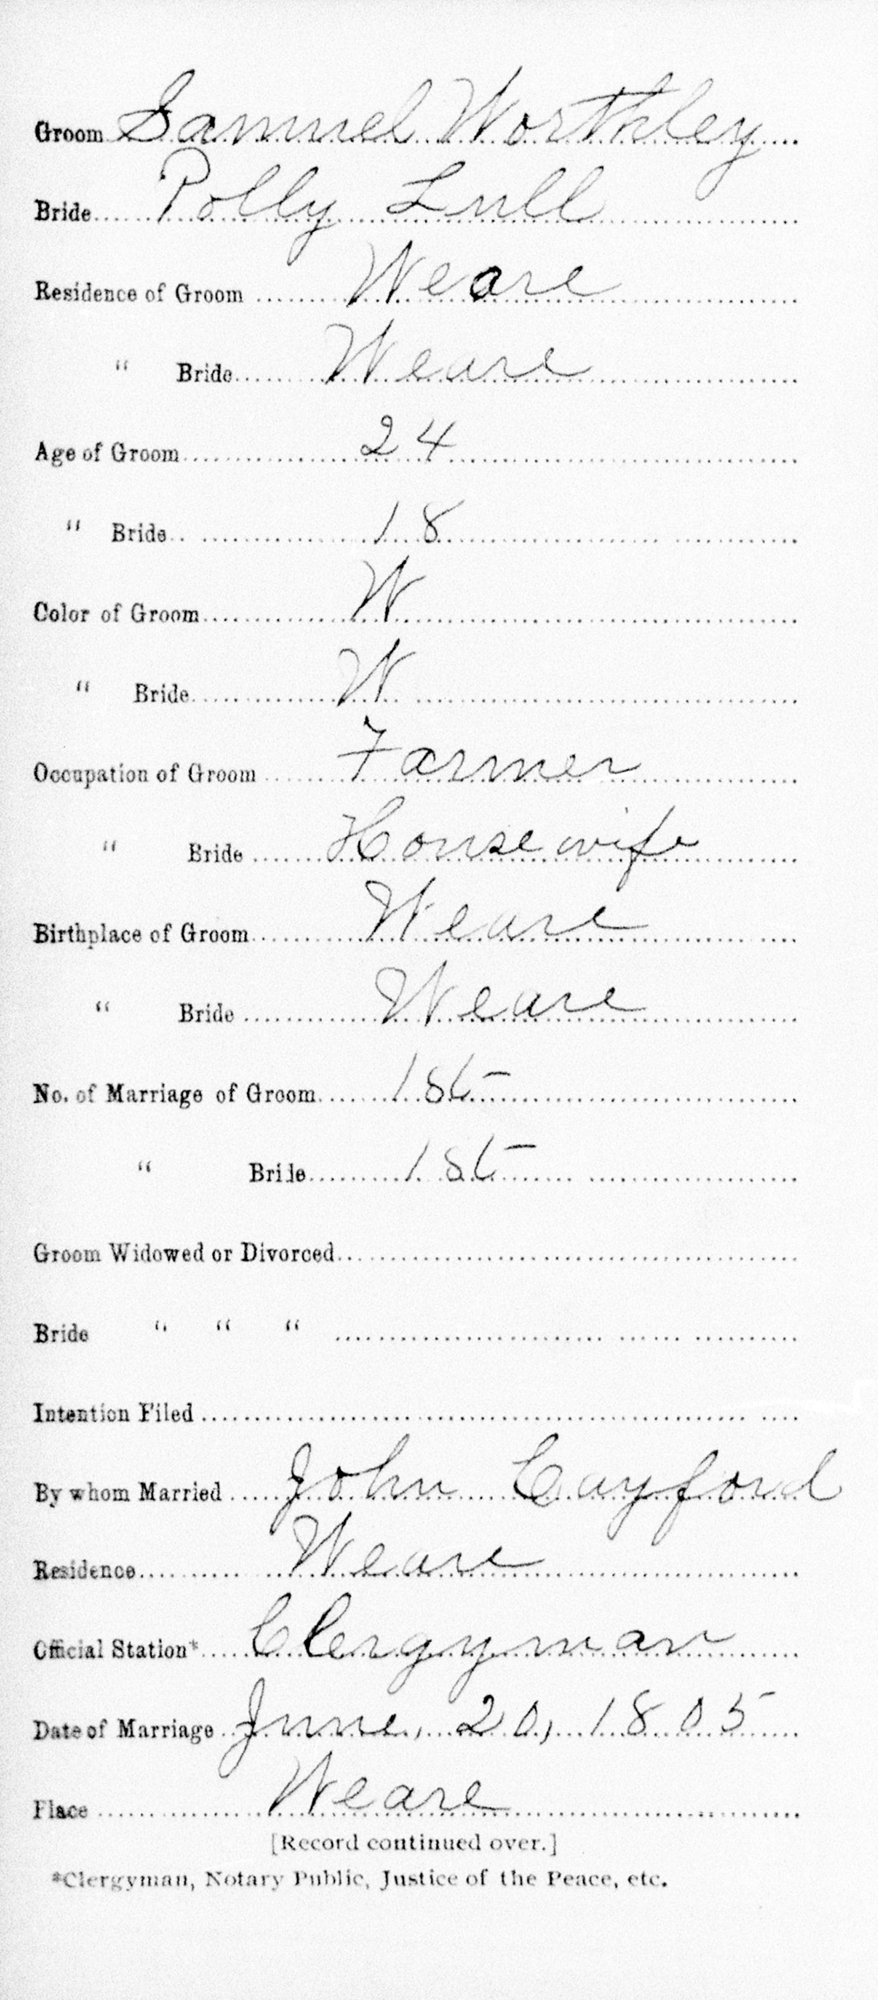 Groom Samuel Worthley
Bride Polly Lull
Residence of Groom Weare
" Bride Weare
Age of Groom 24
" Bride 18
Color of Groom W
" Bride W
Occupation of Groom Farmer
" Bride Housewife
Birthplace of Groom Weare
" Bride Weare
No. of Marriage of Groom 1st
" Bride 1st
Groom Widowed or Divorced
Bride " " "
Intention Filed
By whom Married John Cayford
Residence Weare
Official Station* Clergyman
Date of Marriage June, 20, 1805
Place Weare
[Record continued over.]
*Clergyman, Notary Public, Justice of the Peace, etc.